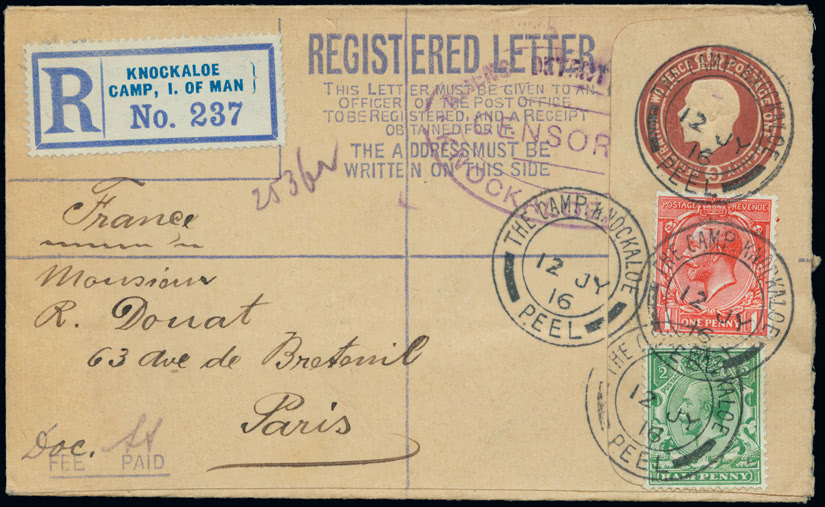 R
KNOCKALOE
CAMP, I. OF MAN
No. 237
REGISTERED LETTER
THIS LETTER MUST BE GIVEN TO AN
OFFICER OF THE POST OFFICE
TO BE REGISTERED, AND A RECEIPT
OBTAINED FOR IT
THE ADDRESS MUST BE
WRITTEN ON THIS SIDE
CENSOR
France
Monsieur
R. Douat
63 ave de Breteuil
Paris
Doc.
FEE PAID
THE CAMP. KNOCKALOE
12 JY
16
PEEL
THE CAMP. KNOCKALOE
12 JY
16
PEEL
POSTAGE REVENUE
ONE PENNY
THE CAMP KNOCKALOE
12 JY
16
HALFPENNY
THE CAMP KNOCKALOE
12 JY
16
PEEL